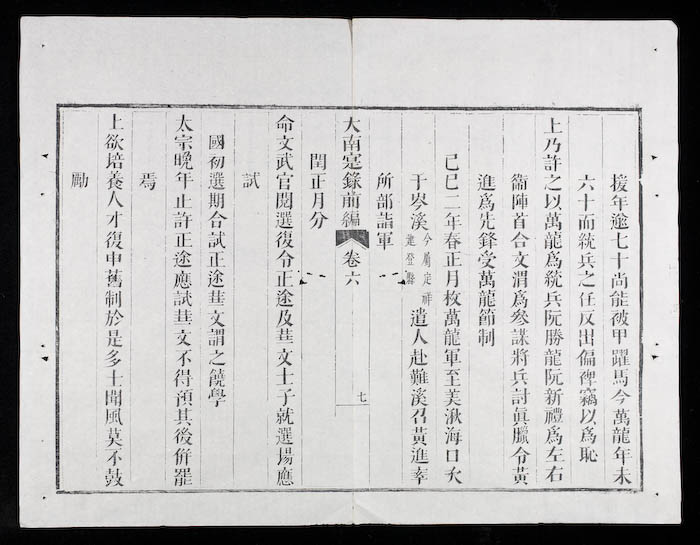 援年逾七十尚能被甲躍馬今萬龍年未
六十而統兵之任反出偏裨竊以爲恥
上乃許之以萬龍爲統兵阮勝龍阮新禮爲左右
衞陣首合文渭爲參謀將兵討眞臘令黃
進爲先鋒受萬龍節制
己巳二年春正月枚萬龍軍至美湫海口次
于岑溪今屬定祥建登縣遣人赴難溪召黃進率
所部詣軍
大南寔錄前編 卷六 七
閏正月分
命文武官閱選復令正途及𦬒文士子就選場應
試
國初選期合試正途𦬒文謂之饒學
太宗晚年止許正途應試𦬒文不得預其後併罷
焉
上欲培養人才復申舊制於是多士聞風莫不鼓
勵